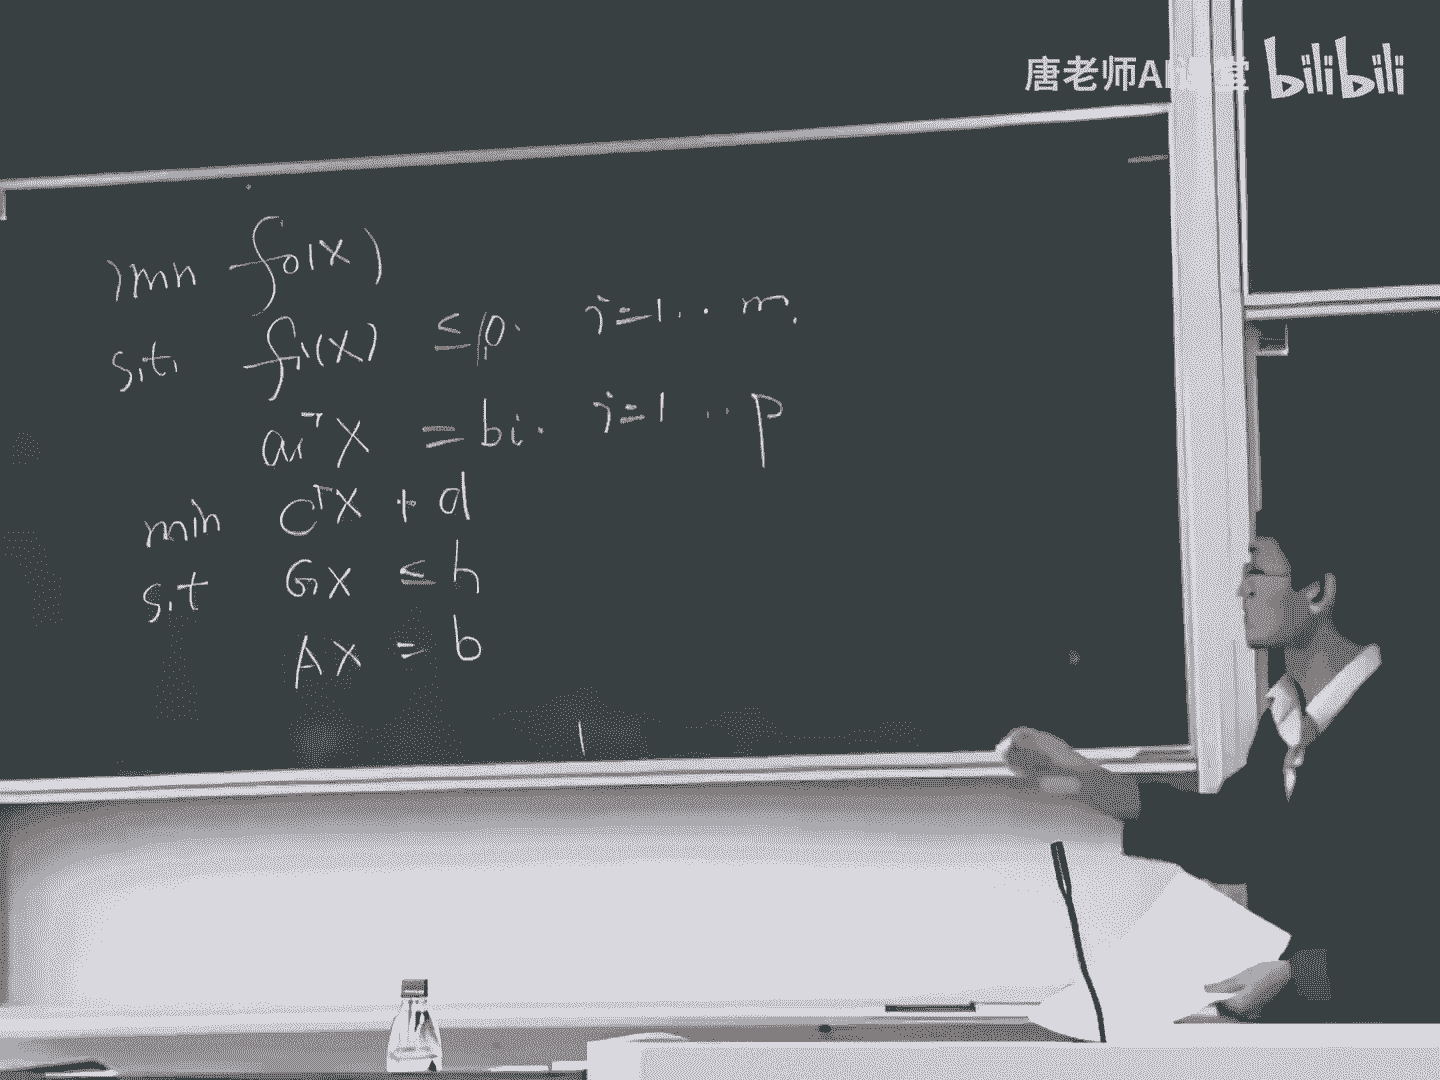 唐老师AI课堂 bilibili
min f₀(x)
s.t. fi(x) ≤ 0. i=1... m.
aiᵀx = bi. i=1 ... p
min cᵀx + d
s.t Gx ≤ h
Ax = b